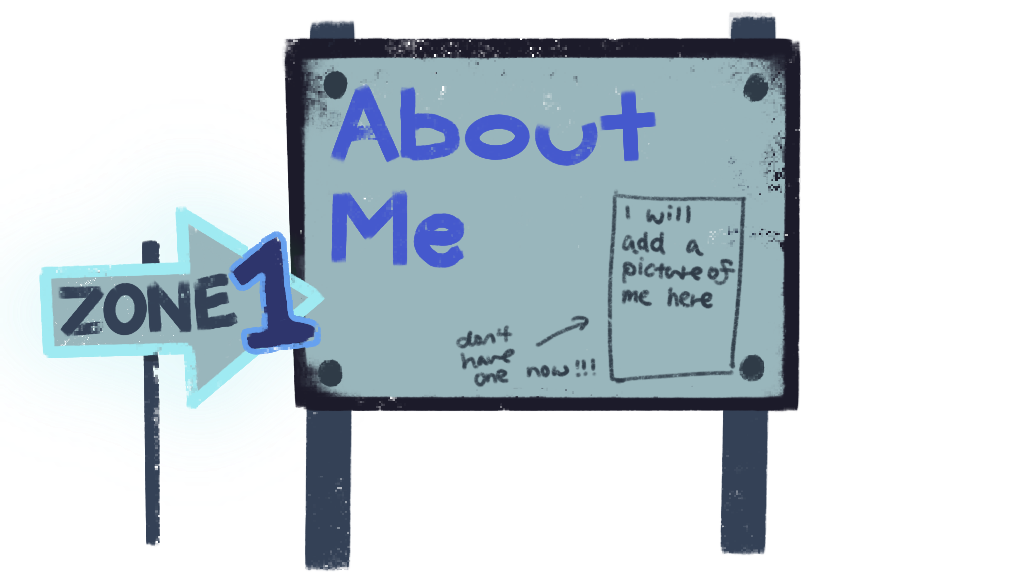 About
Me
ZONE 1
I will
add a
picture of
me here
don't
have
one now!!!